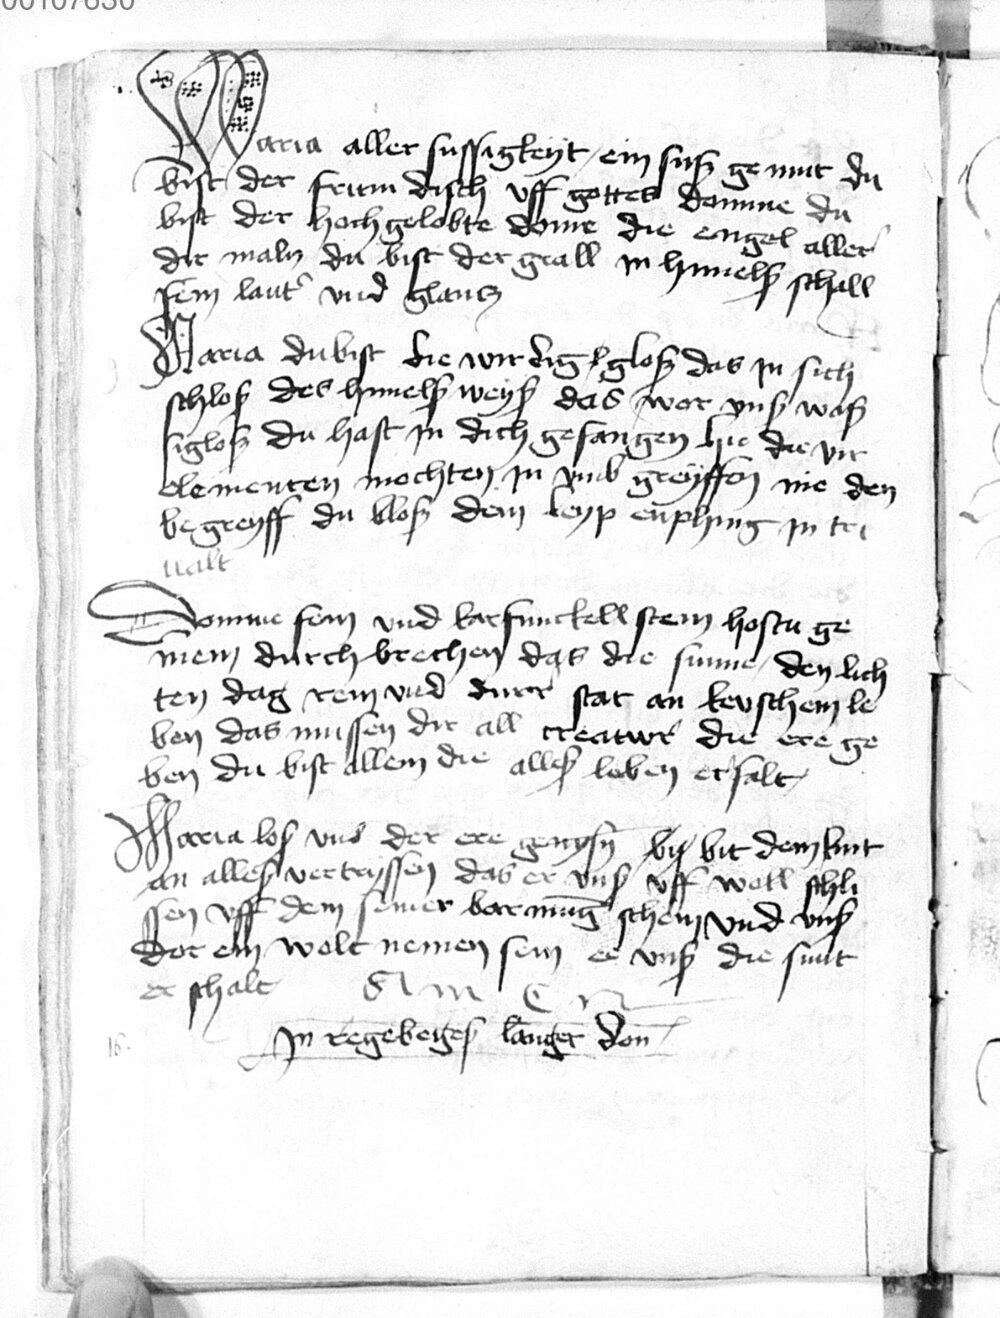 00107630
Maria aller sussigkeyt ein suß gemut du
bist der frum disch vff gottes domme du
bist der hochgelobte dome die engel aller
dir maln du bist der grall in himelß schall
sein laut vnd glancz
Maria du bist die wirdig gloß das in sich
schloß des himelß weyß das wor vnß waß
sigloß du hast in dich gefangen hie die vir
elementen mochten in vmb greyffen nie den
begreyff du bloß dein leyp enphing in tri
ualt
Domme sein vnd karfunckell stein hostu ge
mein durch brechen das die sunne den lich
ten dag rein vnd durr stat an keuschem le
ben das mussen dir all creatur die ere ge
ben du bist allein die alleß leben erhalt
Maria loß vns der ere genysn biß bit dein kint
an alleß vertrissen das er vnß vff woll schli
ssen vff dem seiner barmung schein vnd vnß
dor ein wolt nemen sein er vnß die sunt
er schalt Amen
In regebeges langer don
16.